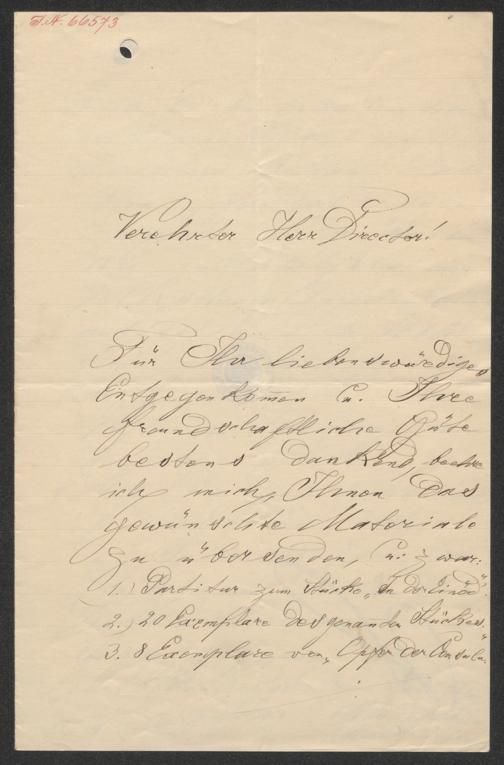 I.N. 66573
Verehrter Herr Director!
Für Ihr liebenswürdiges
Entgegenkomen u. Ihre
freundschaftliche Güte
bestens dankend, beehre
ich mich, Ihnen das
gewünschte Materiale
zu übersenden, u: zwar:
1.) Partitur zum Stücke „In der Einöd".
2.) 20 Exemplare des genanten Stückes.
3. 8 Exemplare von „Opfer der